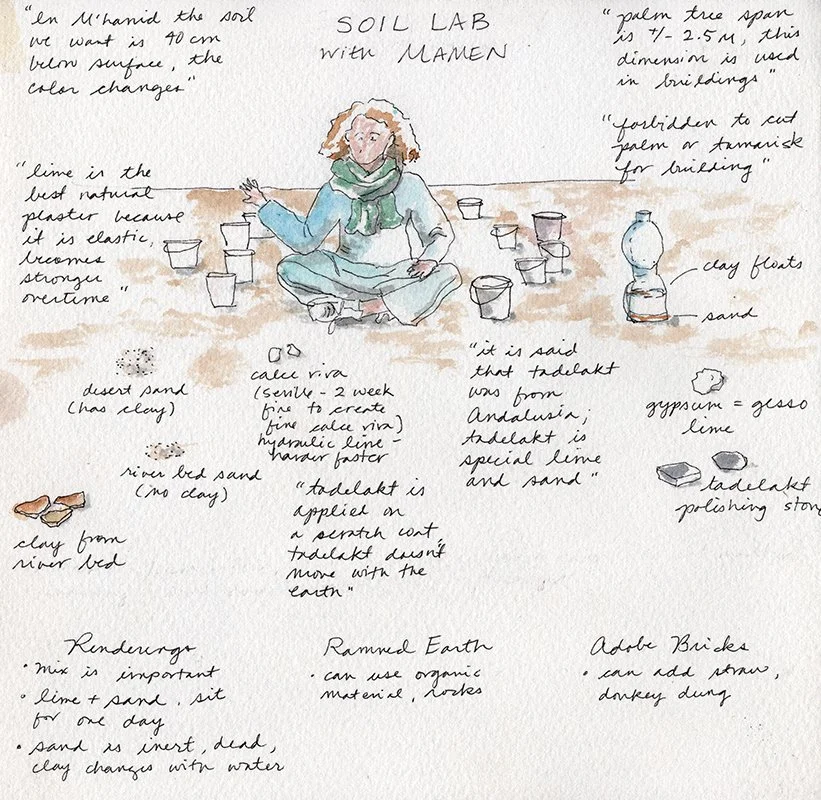 SOIL LAB
with MAMEN
"In M'hamid the soil
we want is 40 cm
below surface, the
color changes"
"palm tree span
is +/- 2.5 M, this
dimension is used
in buildings"
"forbidden to cut
palm or tamarisk
for building"
"lime is the
best natural
plaster because
it is elastic,
becomes
stronger
overtime"
clay floats
sand
desert sand
(has clay)
river bed sand
(no clay)
clay from
river bed
calce riva
(seville - 2 week
fire to create
fine calce riva)
hydraulic lime -
harder faster
"tadelakt is
applied on
a scratch coat,
tadelakt doesn't
move with the
earth"
"it is said
that tadelakt
was from
Andalusia;
tadelakt is
special lime
and sand"
gypsum = gesso
lime
tadelakt
polishing ston
Renderings
• mix is important
• lime + sand, sit
for one day
• sand is inert, dead,
clay changes with water
Rammed Earth
• can use organic
material, rocks
Adobe Bricks
• can add straw,
donkey dung